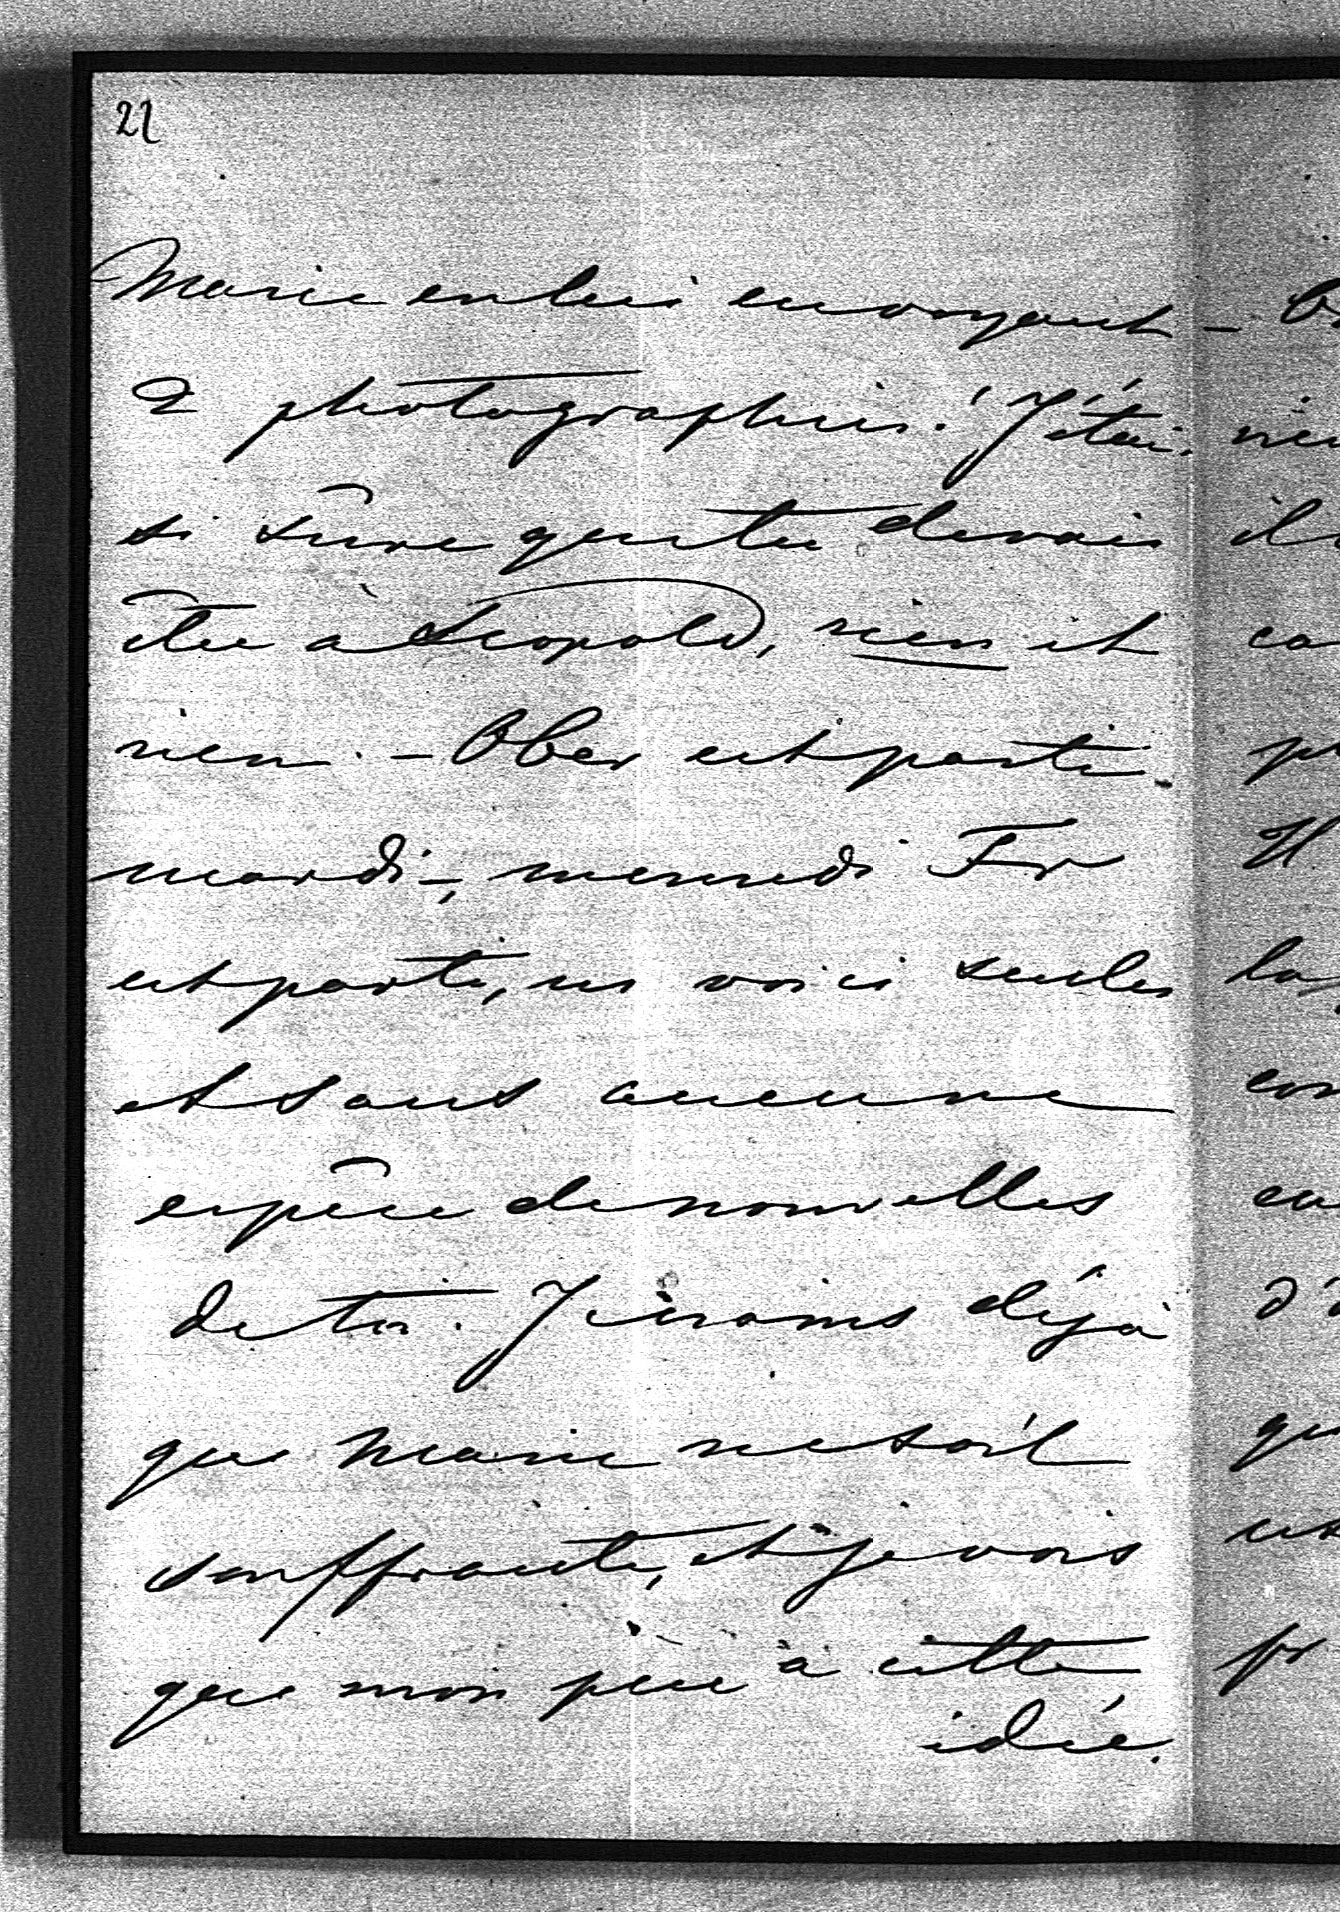 21
Marie en lui envoyant -
2 photographies! J'étais
si sûre que tu devais
être à Leopold, rien et
rien. - Ober est parti
mardi -, mercredi Fr
est parti, ns voici seules
et sans aucune
espèce de nouvelles
de toi. Je crains déjà
que Marie ne soit
souffrante, et je vois
que mon père a cette
idée.